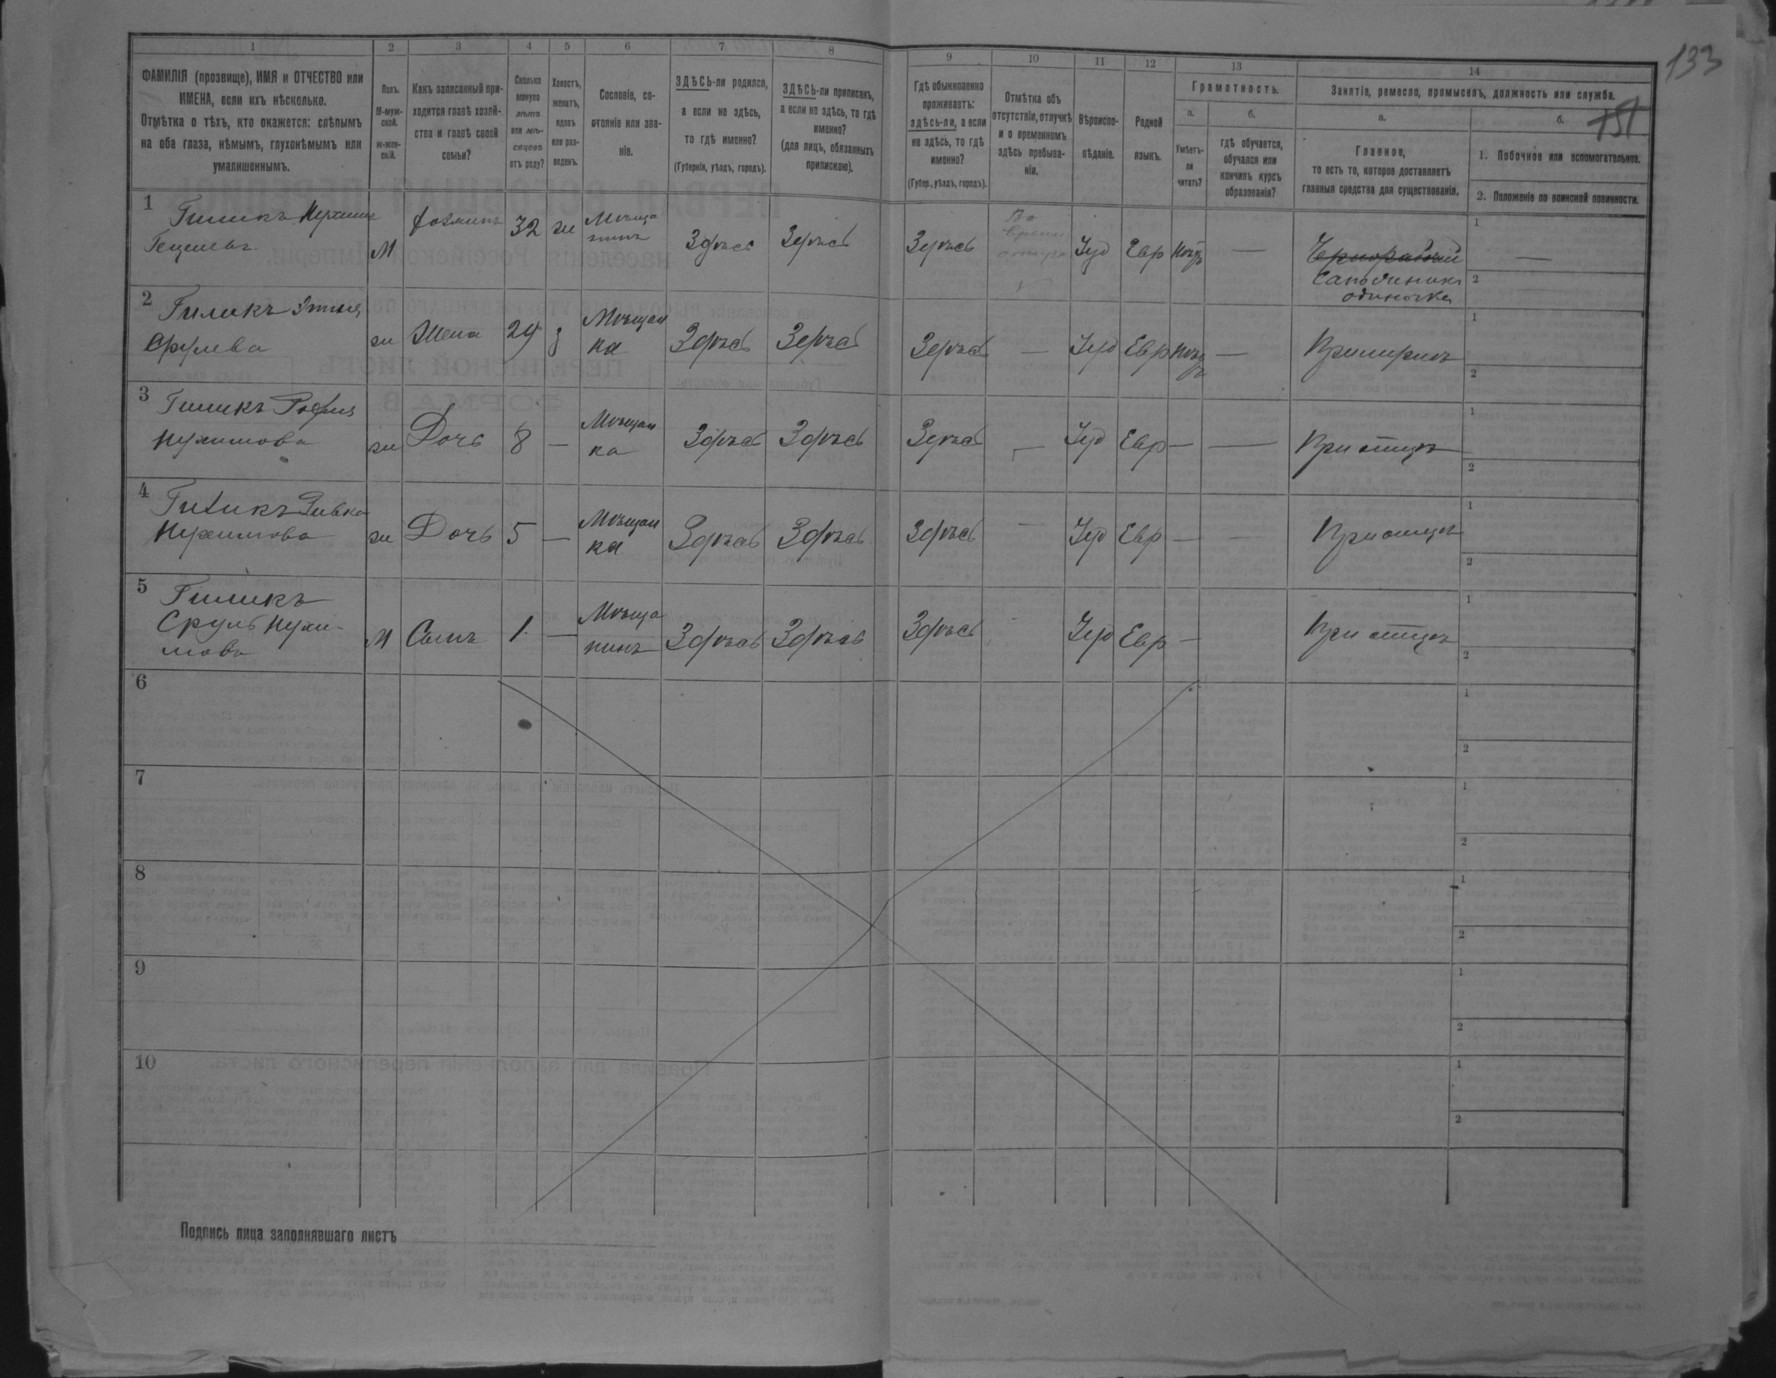 133
151
1 2 3 4 5 6 7 8 9 10 11 12 13 14
ФАМИЛІЯ (прозвище), ИМЯ и ОТЧЕСТВО или
ИМЕНА, если ихъ нѣсколько.
Отмѣтка о тѣхъ, кто окажется: слѣпымъ
на оба глаза, нѣмымъ, глухонѣмымъ или
умалишеннымъ.
Полъ.
М-муж-
ской.
ж-жен-
скій.
Какъ записанный при-
ходится главѣ хозяй-
ства и главѣ своей
семьи?
Сколько
минуло
лѣтъ
или мѣ-
сяцевъ
отъ роду?
Холостъ,
женатъ,
вдовъ
или раз-
веденъ.
Сословіе, со-
стояніе или зва-
ніе.
ЗДѢСЬ-ли родился,
а если не здѣсь,
то гдѣ именно?
(Губернія, уѣздъ, городъ).
ЗДѢСЬ-ли приписанъ,
а если не здѣсь, то гдѣ
именно?
(для лицъ, обязанныхъ
припискою).
Гдѣ обыкновенно
проживаетъ:
здѣсь-ли, а если
не здѣсь, то гдѣ
именно?
(Губер., уѣздъ, городъ).
Отмѣтка объ
отсутствіи, отлучкѣ
и о временномъ
здѣсь пребыва-
ніи.
Вѣроиспо-
вѣданіе.
Родной
языкъ.
Грамотность.
а.
Умѣетъ-
ли
читать?
б.
гдѣ обучается,
обучался или
кончилъ курсъ
образованія?
Занятіе, ремесло, промыселъ, должность или служба.
а.
Главное,
то есть то, которое доставляетъ
главныя средства для существованія.
б.
1. Побочное или вспомогательное.
2. Положеніе по воинской повинности.
1
Гиликъ Нухимъ
М хозяинъ 32 ж Мѣща
нинъ Здѣсь Здѣсь Здѣсь Іуд Евр — Чернорабочій —
Сапожникъ
одиночка
2
Гиликъ
Срулева
ж Жена 29 Мѣщан
ка Здѣсь Здѣсь Здѣсь — Іуд Евр — При мужѣ
3
Гиликъ
Нухимова
ж Дочь 8 — Мѣщан
ка Здѣсь Здѣсь Здѣсь — Іуд Евр — — При отцѣ
4
Гиликъ Ривка
Нухимова
ж Дочь 5 — Мѣщан
ка Здѣсь Здѣсь Здѣсь — Іуд Евр — — При отцѣ
5
Гиликъ
Сруль Нухи-
мовъ
М Сынъ 1 — Мѣща
нинъ Здѣсь Здѣсь Здѣсь Іуд Евр — При отцѣ
6
7
8
9
10
Подпись лица заполнявшаго листъ